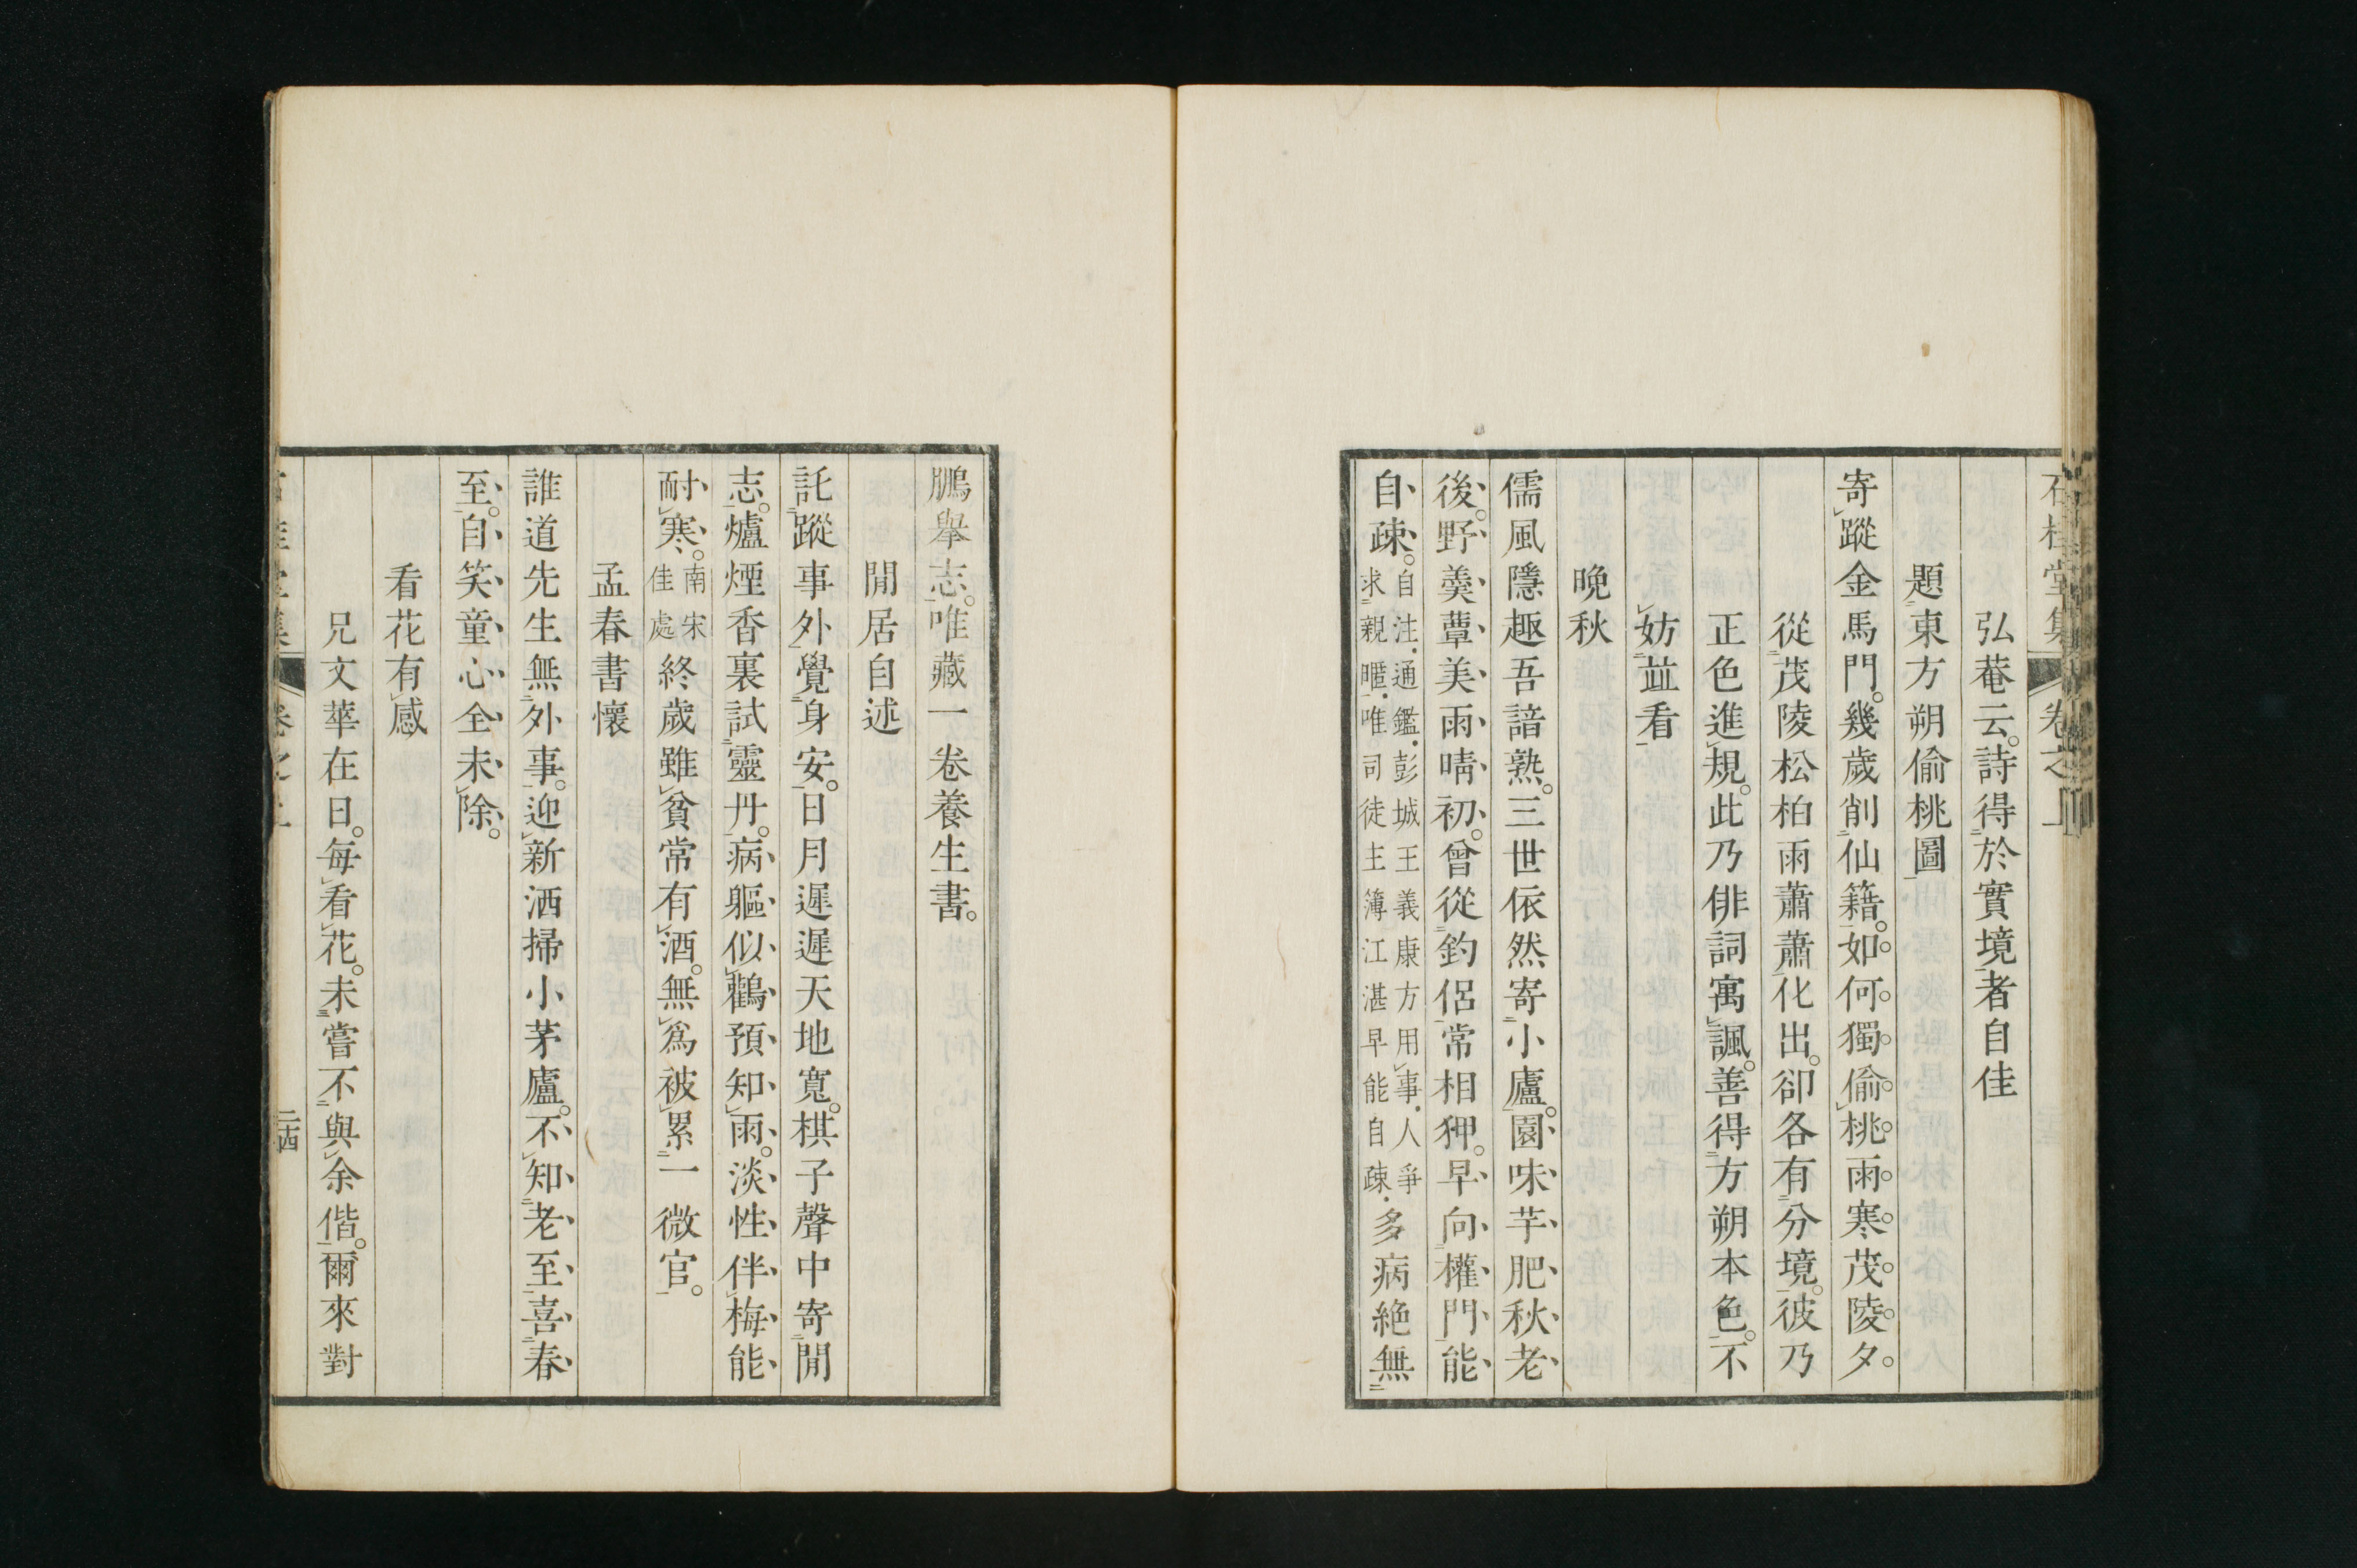 石桂堂集 卷之上
弘菴云。詩得於實境者自佳
題東方朔偷桃圖
寄蹤金馬門。幾歲削仙籍。如何獨偷桃。雨寒茂陵夕。
從茂陵松柏雨蕭蕭化出。卻各有分境。彼乃
正色進規。此乃俳詞寓諷。善得方朔本色。不
妨竝看
晚秋
儒風隱趣吾諳熟。三世依然寄小廬。園味芋肥秋老
後。野羹蕈美雨晴初。曾從釣侶常相狎。早向權門能
自疎。自注。通鑑。彭城王義康方用事。人爭
求親暱。唯司徒主簿江湛早能自疎。多病絶無
鵬舉志。唯藏一卷養生書。
閒居自述
託蹤事外覺身安。日月遲遲天地寬。棋子聲中寄閒
志。爐煙香裏試靈丹。病軀似鸛預知雨。淡性伴梅能
耐寒。南宋
佳處終歲雖貧常有酒。無爲被累一微官。
孟春書懷
誰道先生無外事。迎新洒掃小茅廬。不知老至喜春
至。自笑童心全未除。
看花有感
兄文華在日。每看花。未嘗不與余偕。爾來對